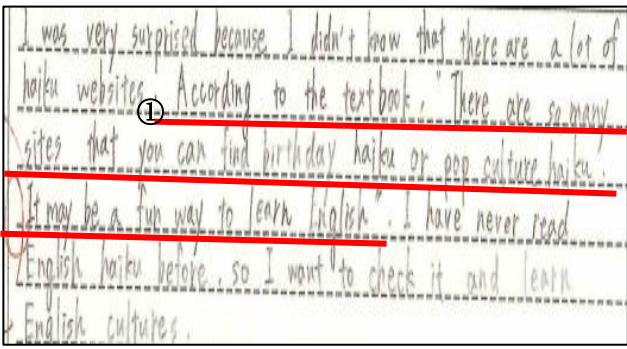 I was very surprised because I didn't know that there are a lot of
haiku websites. According to the textbook, "There are so many
①
sites that you can find birthday haiku or pop culture haiku.
It may be a fun way to learn English". I have never read
English haiku before, so I want to check it and learn
English cultures.